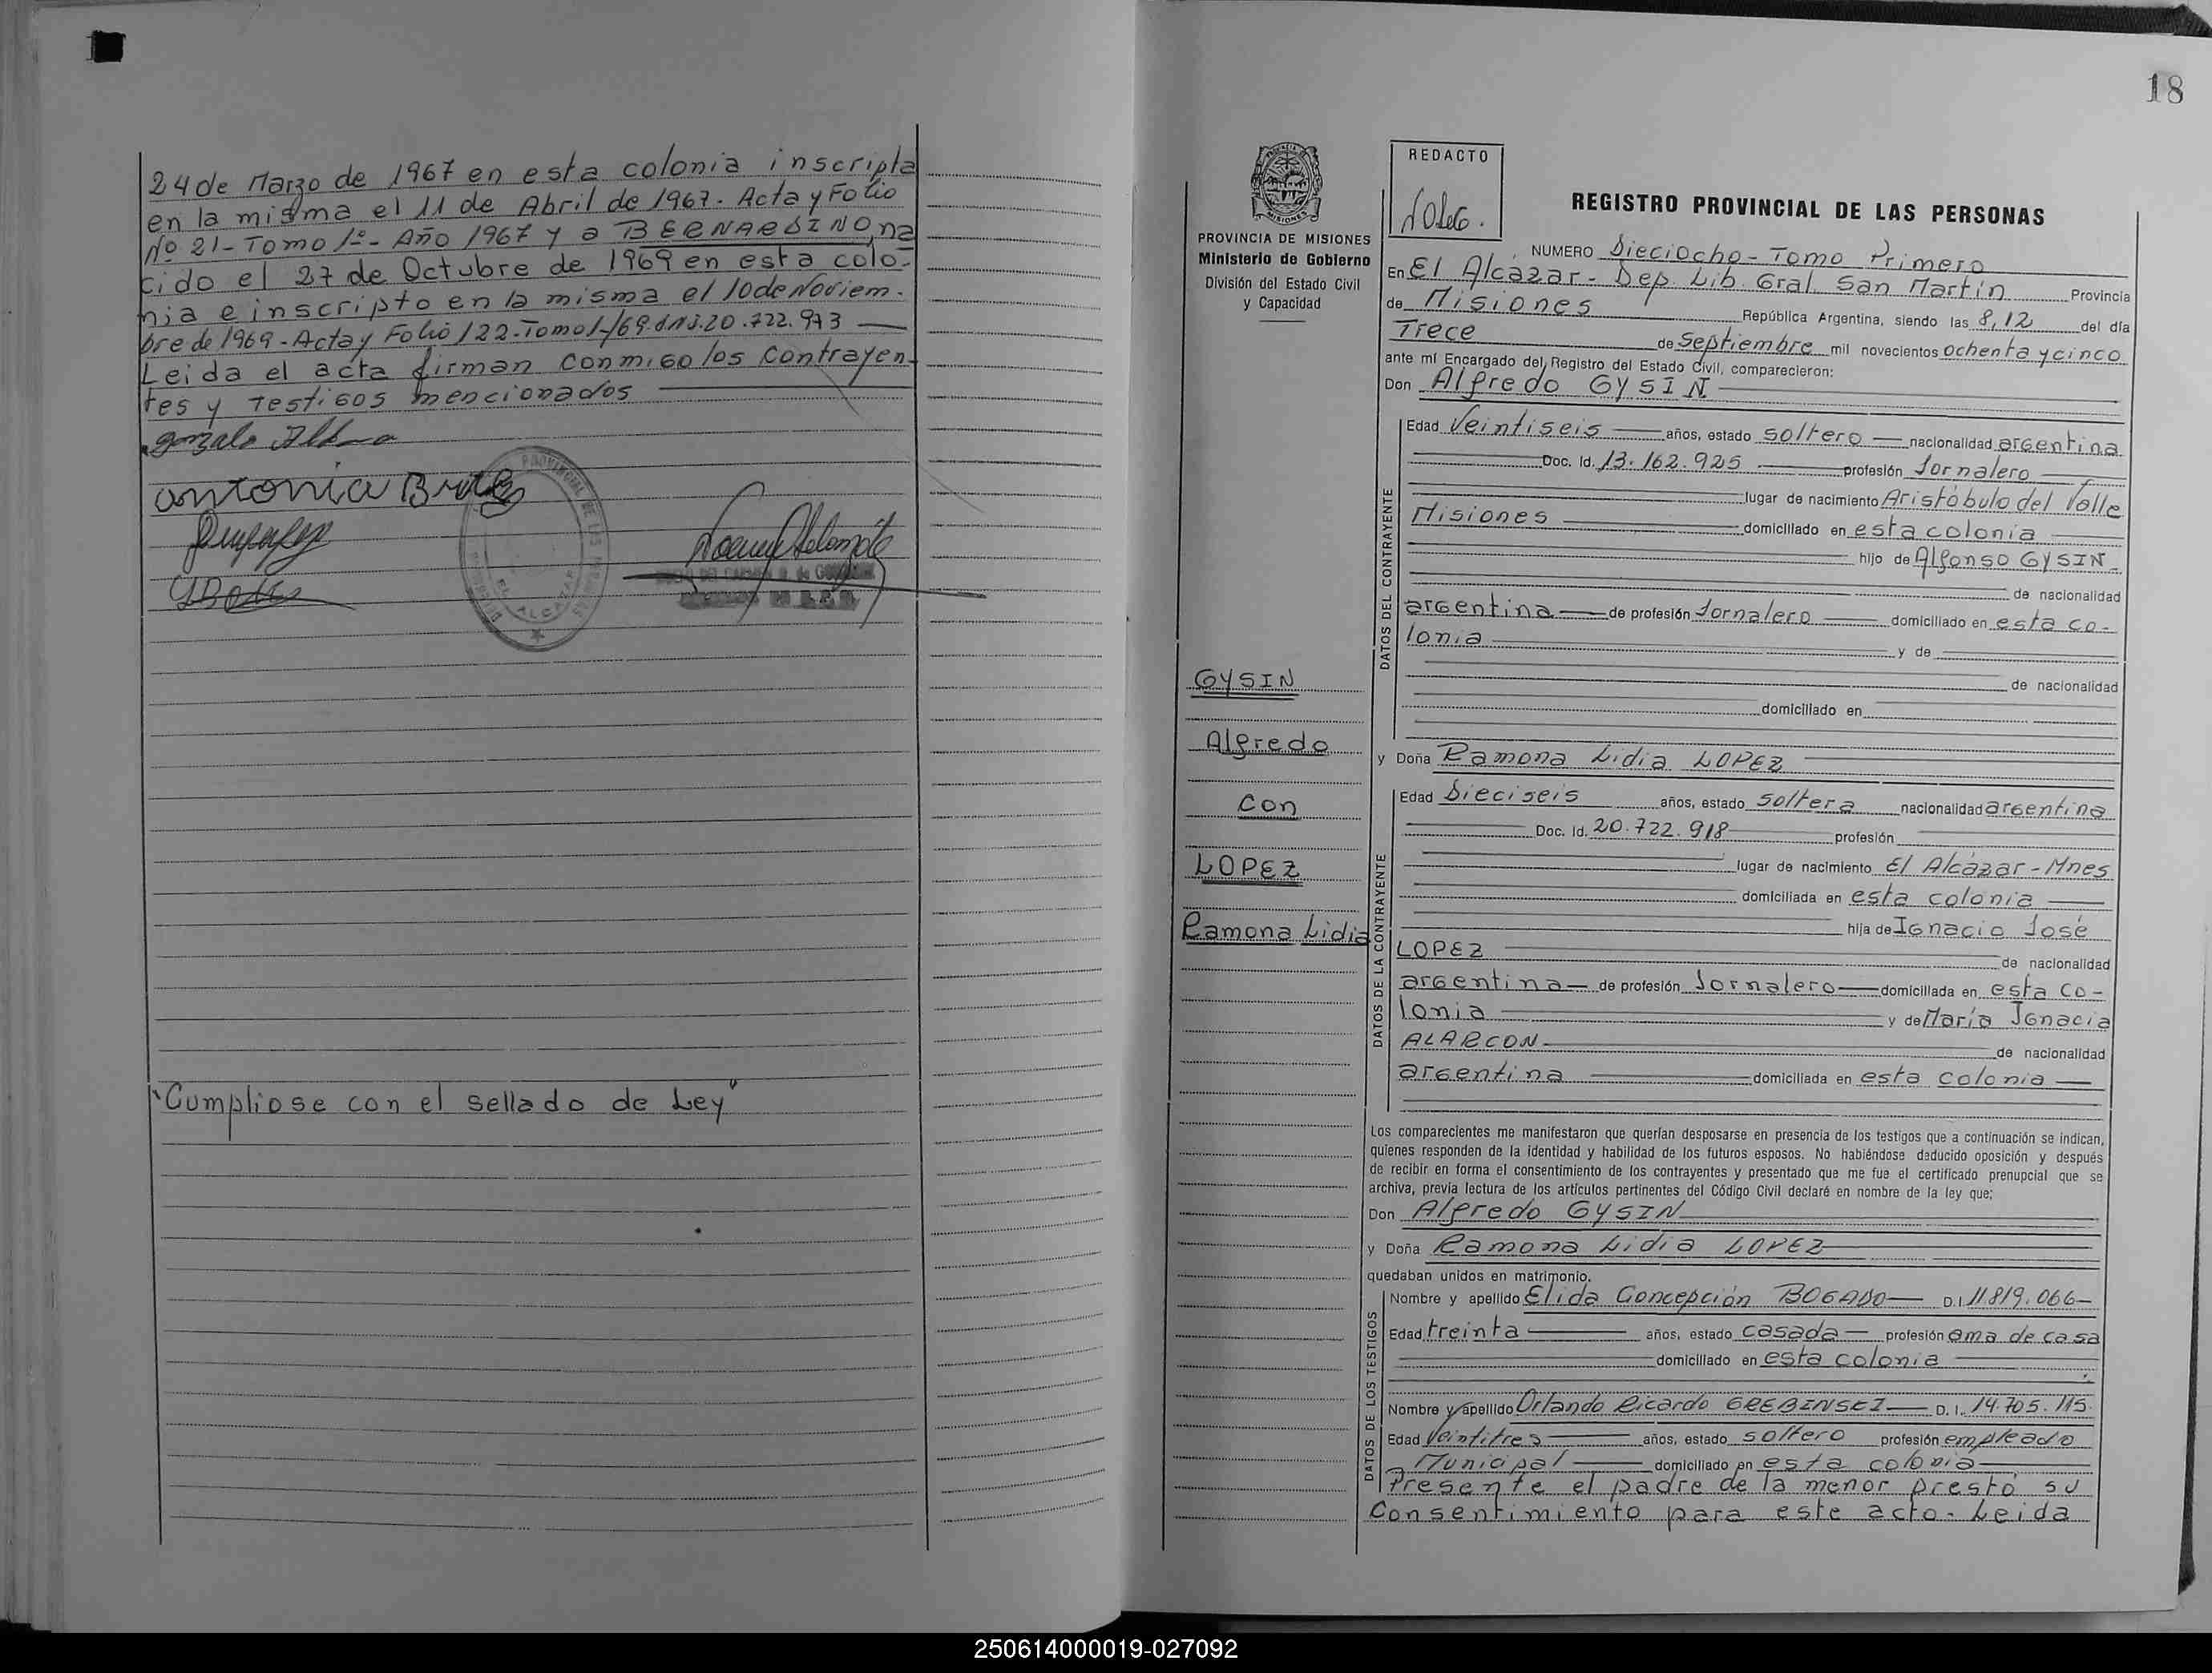 24 de Marzo de 1967 en esta colonia inscripta
en la misma el 11 de Abril de 1967. Acta y Folio
Nº 21 - Tomo 1º - Año 1967 y a BERNARDINO, na
cido el 27 de Octubre de 1969 en esta colo-
nia e inscripto en la misma el 10 de Noviem-
bre de 1969 - Acta y Folio 122 - Tomo 1-/69. DNI. 20.722.973
Leida el acta firman conmigo los Contrayen-
tes y Testigos mencionados
antonia
"Cumpliose con el sellado de Ley"
18
REDACTO
REGISTRO PROVINCIAL DE LAS PERSONAS
PROVINCIA DE MISIONES
Ministerio de Gobierno
División del Estado Civil
y Capacidad
NUMERO Dieciocho - Tomo Primero
En El Alcázar - Dep. Lib. Gral. San Martín Provincia
de Misiones República Argentina, siendo las 8,12 del día
Trece de Septiembre mil novecientos ochenta y cinco
ante mí Encargado del Registro del Estado Civil, comparecieron:
Don Alfredo GYSIN
DATOS DEL CONTRAYENTE
Edad Veintiseis años, estado soltero nacionalidad argentina
Doc. Id. 13.162.925 profesión Jornalero
lugar de nacimiento Aristóbulo del Valle
Misiones domiciliado en esta colonia
hijo de Alfonso GYSIN
de nacionalidad
argentina de profesión Jornalero domiciliado en esta co-
lonia y de
de nacionalidad
domiciliado en
GYSIN
Alfredo
con
LOPEZ
Ramona Lidia
y Doña Ramona Lidia LOPEZ
DATOS DE LA CONTRAYENTE
Edad Dieciseis años, estado soltera nacionalidad argentina
Doc. Id. 20.722.918 profesión
lugar de nacimiento El Alcázar - Mnes
domiciliada en esta colonia
hija de Ignacio José
LOPEZ de nacionalidad
argentina de profesión Jornalero domiciliada en esta co-
lonia y de María Ignacia
ALARCON de nacionalidad
argentina domiciliada en esta colonia
Los comparecientes me manifestaron que querían desposarse en presencia de los testigos que a continuación se indican,
quienes responden de la identidad y habilidad de los futuros esposos. No habiéndose deducido oposición y después
de recibir en forma el consentimiento de los contrayentes y presentado que me fue el certificado prenupcial que se
archiva, previa lectura de los artículos pertinentes del Código Civil declaré en nombre de la ley que;
Don Alfredo GYSIN
y Doña Ramona Lidia LOPEZ
quedaban unidos en matrimonio.
DATOS DE LOS TESTIGOS
Nombre y apellido Elida Concepción BOGADO D.I. 11.819.066
Edad treinta años, estado casada profesión ama de casa
domiciliado en esta colonia
Nombre y apellido Orlando Ricardo GREBINSKI D.I. 14.705.115
Edad Veintitres años, estado soltero profesión empleado
Municipal domiciliado en esta colonia
Presente el padre de la menor prestó su
Consentimiento para este acto. Leida
250614000019-027092